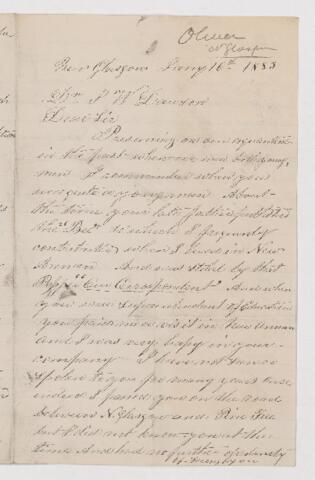 Oliver
N Glasgow
New Glasgow Jany 16th 1883
J W Dawson
Dear Sir
Presuming on our
in the past when we were both young
men I remember when you
were quite a young man About
the time your late father published
the Bee to which I frequently
contributed when I lived in New
Annan And was styled by that
Paper Our Correspondent And when
you were Superintendent of Education
you paid me a visit in New Annan
and I was very happy in your
company I have not
spoken to you for many years
indeed I passed you on the road
between N. Glasgow and
but I did not know you at the
time And had no further opportunity